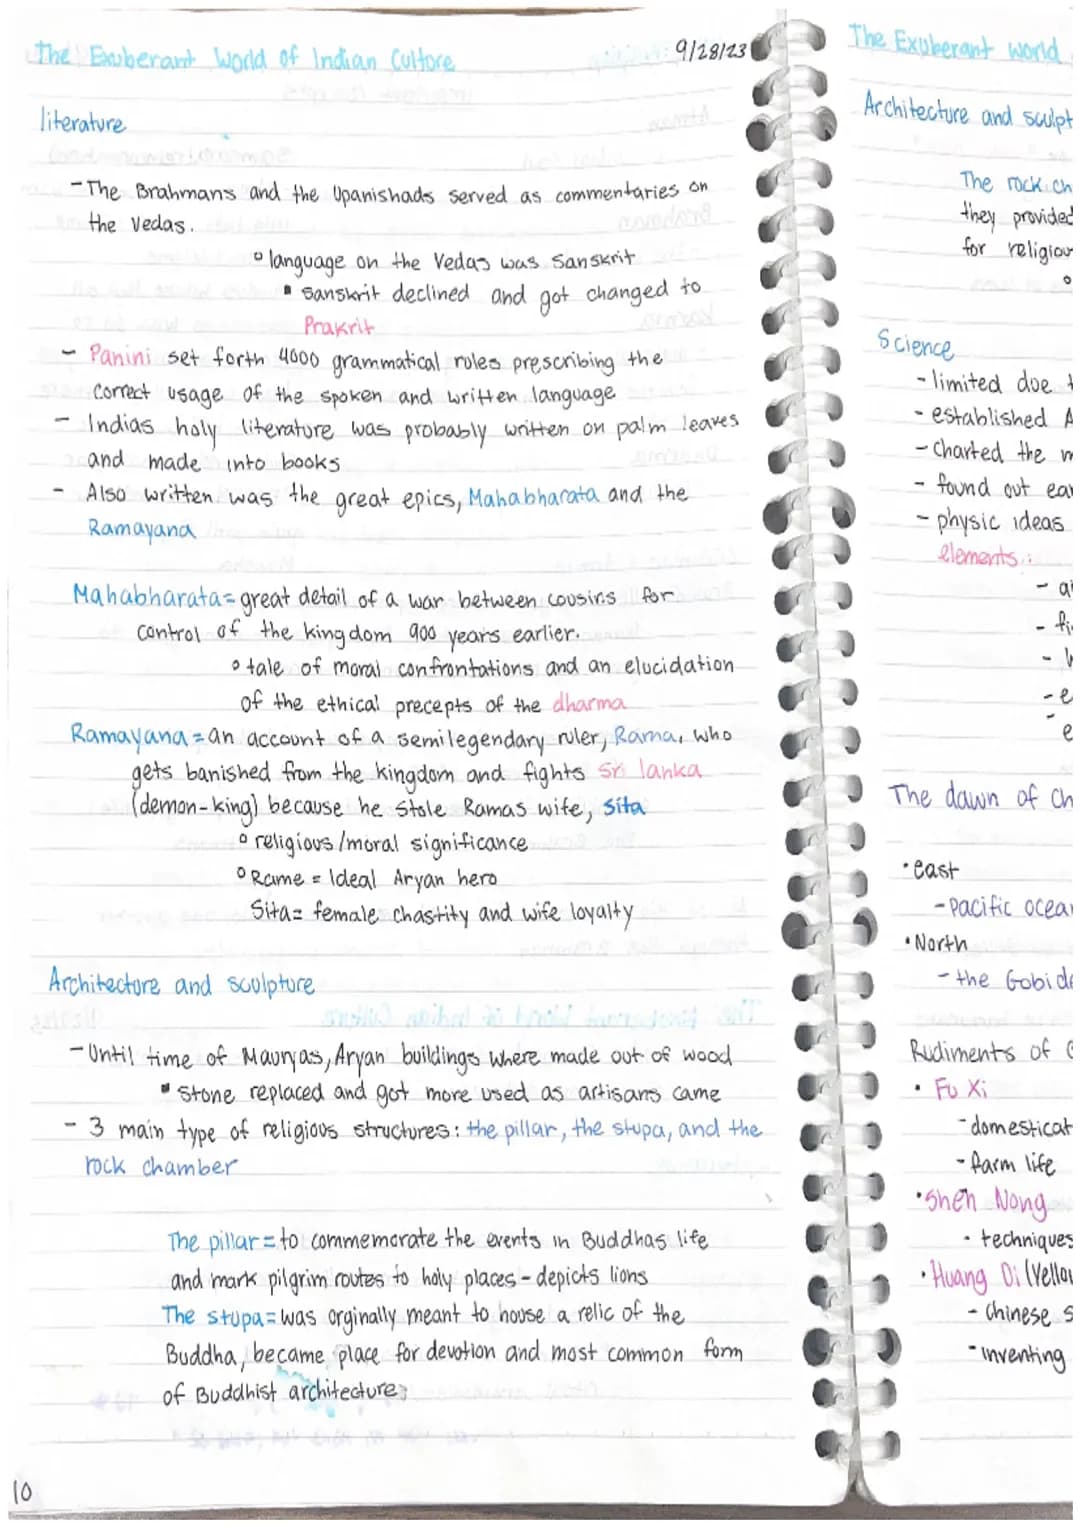 The Exuberant World of Indian Culture 9/28/23
literature
- The Brahmans and the Upanishads served as commentaries on
the Vedas.
° language on the Vedas was Sanskrit
▪ Sanskrit declined and got changed to
Prakrit
- Panini set forth 4000 grammatical rules prescribing the
correct usage of the spoken and written language
- Indias holy literature was probably written on palm leaves
and made into books
- Also written was the great epics, Mahabharata and the
Ramayana
Mahabharata= great detail of a war between cousins for
control of the kingdom 900 years earlier.
° tale of moral confrontations and an elucidation
of the ethical precepts of the dharma
Ramayana = an account of a semilegendary ruler, Rama, who
gets banished from the kingdom and fights Sri lanka
(demon-king) because he stole Ramas wife, Sita
° religious/moral significance
° Rame = Ideal Aryan hero
Sita= female chastity and wife loyalty
Architecture and sculpture
- Until time of Mauryas, Aryan buildings where made out of wood
▪ Stone replaced and got more used as artisans came
- 3 main type of religious structures: the pillar, the stupa, and the
rock chamber
The pillar = to commemorate the events in Buddhas life
and mark pilgrim routes to holy places - depicts lions
The stupa= was orginally meant to house a relic of the
Buddha, became place for devotion and most common form
of Buddhist architecture
10
The Exuberant world
Architecture and sculpt
The rock ch
they provided
for religiou
°
Science
- limited due t
- established A
- Charted the m
- found out ear
- physic ideas
elements:
- ai
- fi
- 
- e
- e
The dawn of Ch
• east
- Pacific ocea
• North
- the Gobi de
Rudiments of C
• Fu Xi
- domesticat
- farm life
• Shen Nong
- techniques
• Huang Di (Yellow
- Chinese s
- inventing